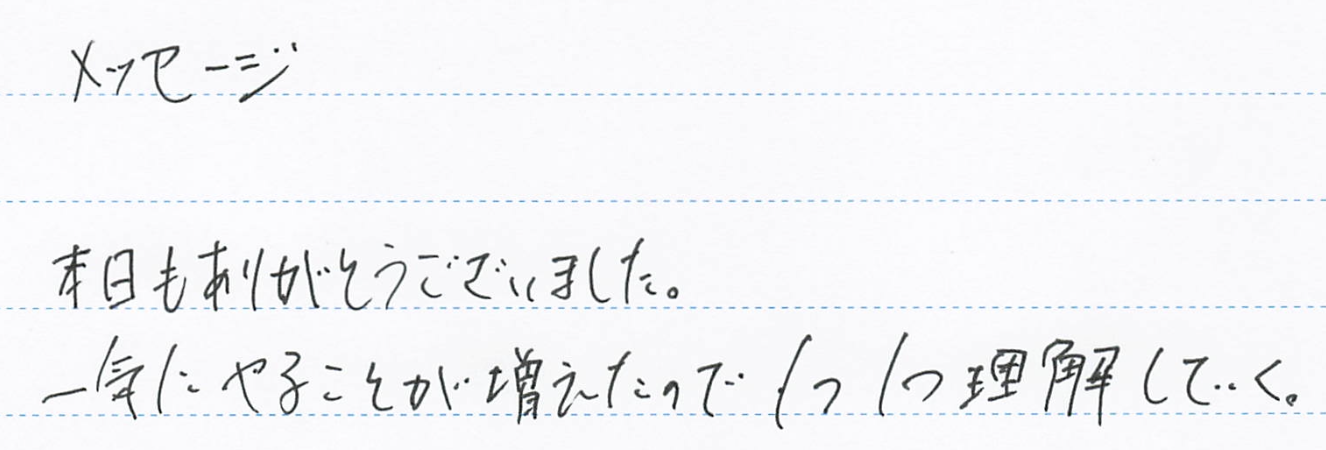 メッセージ
本日もありがとうございました。
一気にやることが増えたので1つ1つ理解していく。